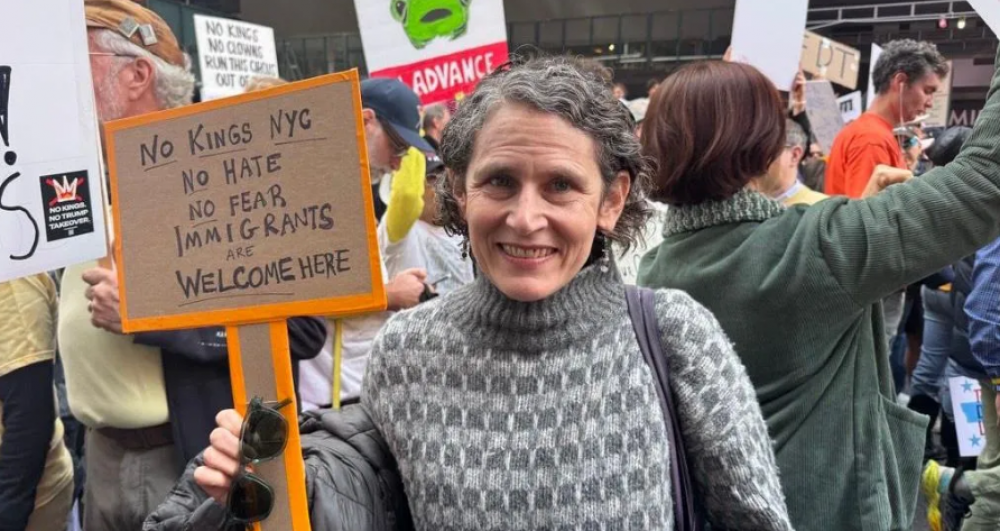 NO KINGS
NO CLOWNS
RUN THIS CIRCUS
OUT OF
ADVANCE
!
S
NO KINGS.
NO TRUMP
TAKEOVER.
NO KINGS NYC
NO HATE
NO FEAR
IMMIGRANTS
ARE
WELCOME HERE